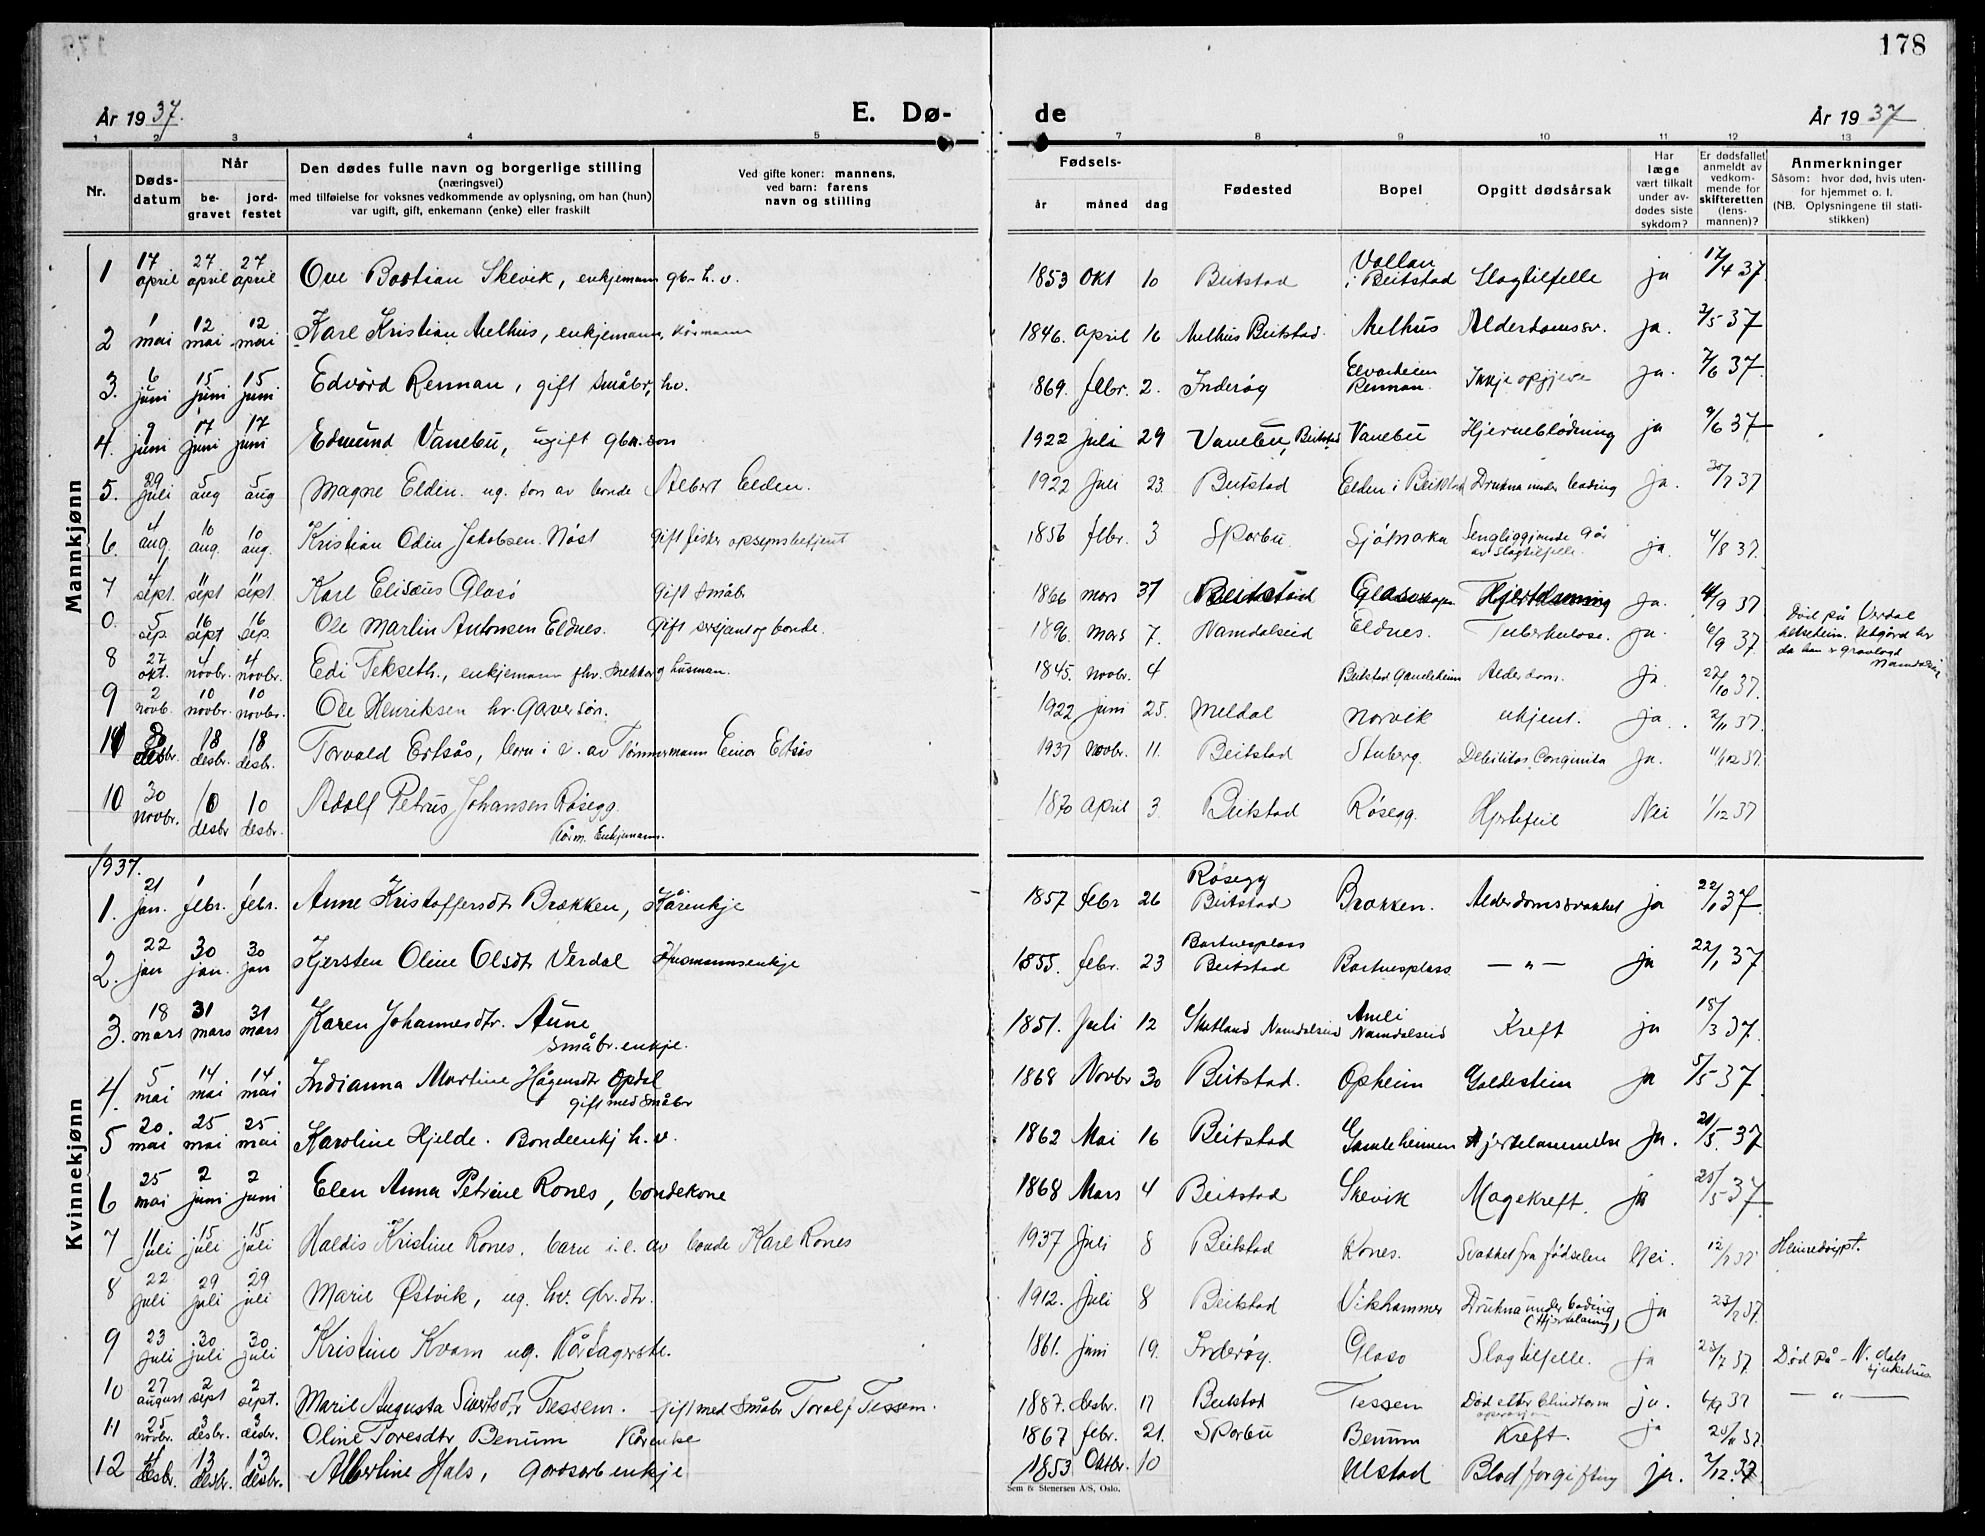 178
År 1937.
E. Dø-
de
År 1937
1 2 3 4 5 7 8 9 10 11 12 13
Nr.
Døds-
datum
Når
be-
gravet
jord-
festet
Den dødes fulle navn og borgerlige stilling
(næringsvei)
med tilføielse for voksnes vedkommende av oplysning, om han (hun)
var ugift, gift, enkemann (enke) eller fraskilt
Ved gifte koner: mannens,
ved barn: farens
navn og stilling
Fødsels-
år måned dag
Fødested
Bopel
Opgitt dødsårsak
Har
læge
vært tilkalt
under av-
dødes siste
sykdom?
Er dødsfallet
anmeldt av
vedkom-
mende for
skifteretten
(lens-
mannen)?
Anmerkninger
Såsom: hvor død, hvis uten-
for hjemmet o. l.
(NB. Oplysningene til stati-
stikken)
Mannkjønn
1 17 april 27 april 27 april Ove Bastian Skevik, enkjemann gbr. h. v. 1853 Okt 10 Beitstad Vollan i Beitstad Slagtilfelle ja 17/4 37
2 1 mai 12 mai 12 mai Karl Kristian Melhus, enkjemann, kårmann 1846. april 16 Melhus Beitstad. Melhus Alderdomssv. ja. 2/5 37
3. 6 juni 15 juni 15 juni Edvard Renman, gift småbr, hv. 869. febr. 2. Inderøy Elvarheim Renman. Ikkje oppjeve ja. 7/6 37
4. 9 juni 17 juni 17 juni Edmund Vanebu, ugift gbr.son 1922 juli 29 Vanebu, Beitstad Vanebu Hjerneblødning ja 9/6 37
5. 29 juli 5 aug 5 aug Magne Elden. ug. son av bonde Albert Elden. 1922 Juli 23 Beitstad Elden i Beitstad Drukna under bading ja. 30/7 37
6. 4 aug. 10 aug. 10 aug. Kristian Odin Jakobsen Nøst Gift fisker opsynsbetjent 1856 febr. 3 Sparbu Sjøtnaka Sengliggjende 9 år av slagtilfelle. ja. 4/8 37.
7 4 sept. 11 sept 11 sept. Karl Elisæus Glasø Gift Småbr 1866 mars 31 Beitstad Glasø Hjertelamming ja. 4/9 37
0. 5 sep. 16 sept 16 sep. Ole Martin Antonsen Eldnes. Gift sersjant og bonde. 1896. mars 7. Namdalseid Eldnes. Tuberkulose. ja. 6/9 37. Død på Verdal
da han er gravlagd
Namdalseid
8 27 okt. 4 novbr. 4 novbr. Edi Tekseth., enkjemann fhv. snekker og husman. 1845. novbr. 4 Beitstad Gamleheim Alderdom. ja. 27/10 37.
9 2 novb. 10 novbr. 10 novbr. Ole Henriksen hv. Gaversøn. 1922 juni 25. Meldal Norvik ukjent. ja. 2/11 37.
11 8 desbr. 18 desbr. 18 desbr. Torvald Ertsås, born i e. av Tømmermann Einar Ertsås 1937 novbr. 11. Beitstad Stuberg. Debilitas Conginita Ja. 11/12 37.
10 30 novbr. 10 desbr 10 desbr. Adolf Petrus Johansen Røsegg.
Kårm. Enkjemann. 1870 April 3. Beitstad Røsegg. Hjertefeil Nei 1/12 37
Kvinnekjønn
1937.
1. 21 jan. 1 febr. 1 febr. Anne Kristoffersdtr Brækken, Kårenkje 1857 febr 26 Røsegg Beitstad Brækken. Alderdomssvakhet ja 22/1 37.
2. 22 jan 30 jan. 30 jan Kjersten Oline Olsdtr Verdal Husmannsenkje 1855. febr. 23 Bartnesplass Beitstad Bartnesplass — " — ja 22/1 37
3. 18 mars 31 mars 31 mars Karen Johannesdtr. Aune
småbr.enkje. 1851. Juli 12 Skotland Namdalseid Namdalseid Kreft ja 18/3 37.
4. 5 mai 14 mai 14 mai Indianna Martine Hågensdtr Opdal
gift med småbr 1868 Novbr 30 Beitstad. Opheim Galdestein Ja 5/5 37
5 20. mai 25 mai 25 mai Karoline Hjelde. Bondeenkj h. v. 1862 Mai 16 Beitstad Gamleheimen Hjertelammelse Ja. 21/5. 37
6 25 mai 2 juni 2 juni Elen Anna Petrine Rones, bondekone 1868 Mars 4 Beitstad Skevik Magekreft. ja 25/5 37
7 11 juli 15 juli 15 juli Haldis Kristine Rones. barn i. e. av bonde Karl Rones 1937 Juli 8 Beitstad Rones. Svakhet fra fødselen Nei. 12/7 37 Heimedøypt.
8 22 juli 29 juli 29 juli Marie Østvik, ug. hv. gbr. dtr. 1912. Juli 8 Beitstad Vikhammer Drukna under bading
(Hjertelaming) ja 23/7 37.
9 23 juli 30 juli 30 juli Kristine Kvam ug. Kårtagerske. 1861. juni 19. Inderøy. Glasø Slagtilfelle. ja 23/7 37. Død på N.dals
sjukehus
10 27 august 2 sept 2 sept. Marie Augusta Sivertsdtr Tessem. gift med Småbr Toralf Tessem. 1887. desbr. 17 Beitstad Tessem Død etter blindtarm
operasjon ja. 6/9 37 — " —
11 25 novbr. 3 desbr. 3 desbr. Oline Toresdtr Benum Kårenke 1867 febr. 21. Sparbu Benum Kreft. ja 25/11 37.
12 4 desbr. 13 desbr. 13 desbr. Albertine Hals, gardsarb enkje 1853 Oktbr. 10 Ulstad Blodforgiftning ja. 7/12. 37
Sem & Stenersen A/S, Oslo.